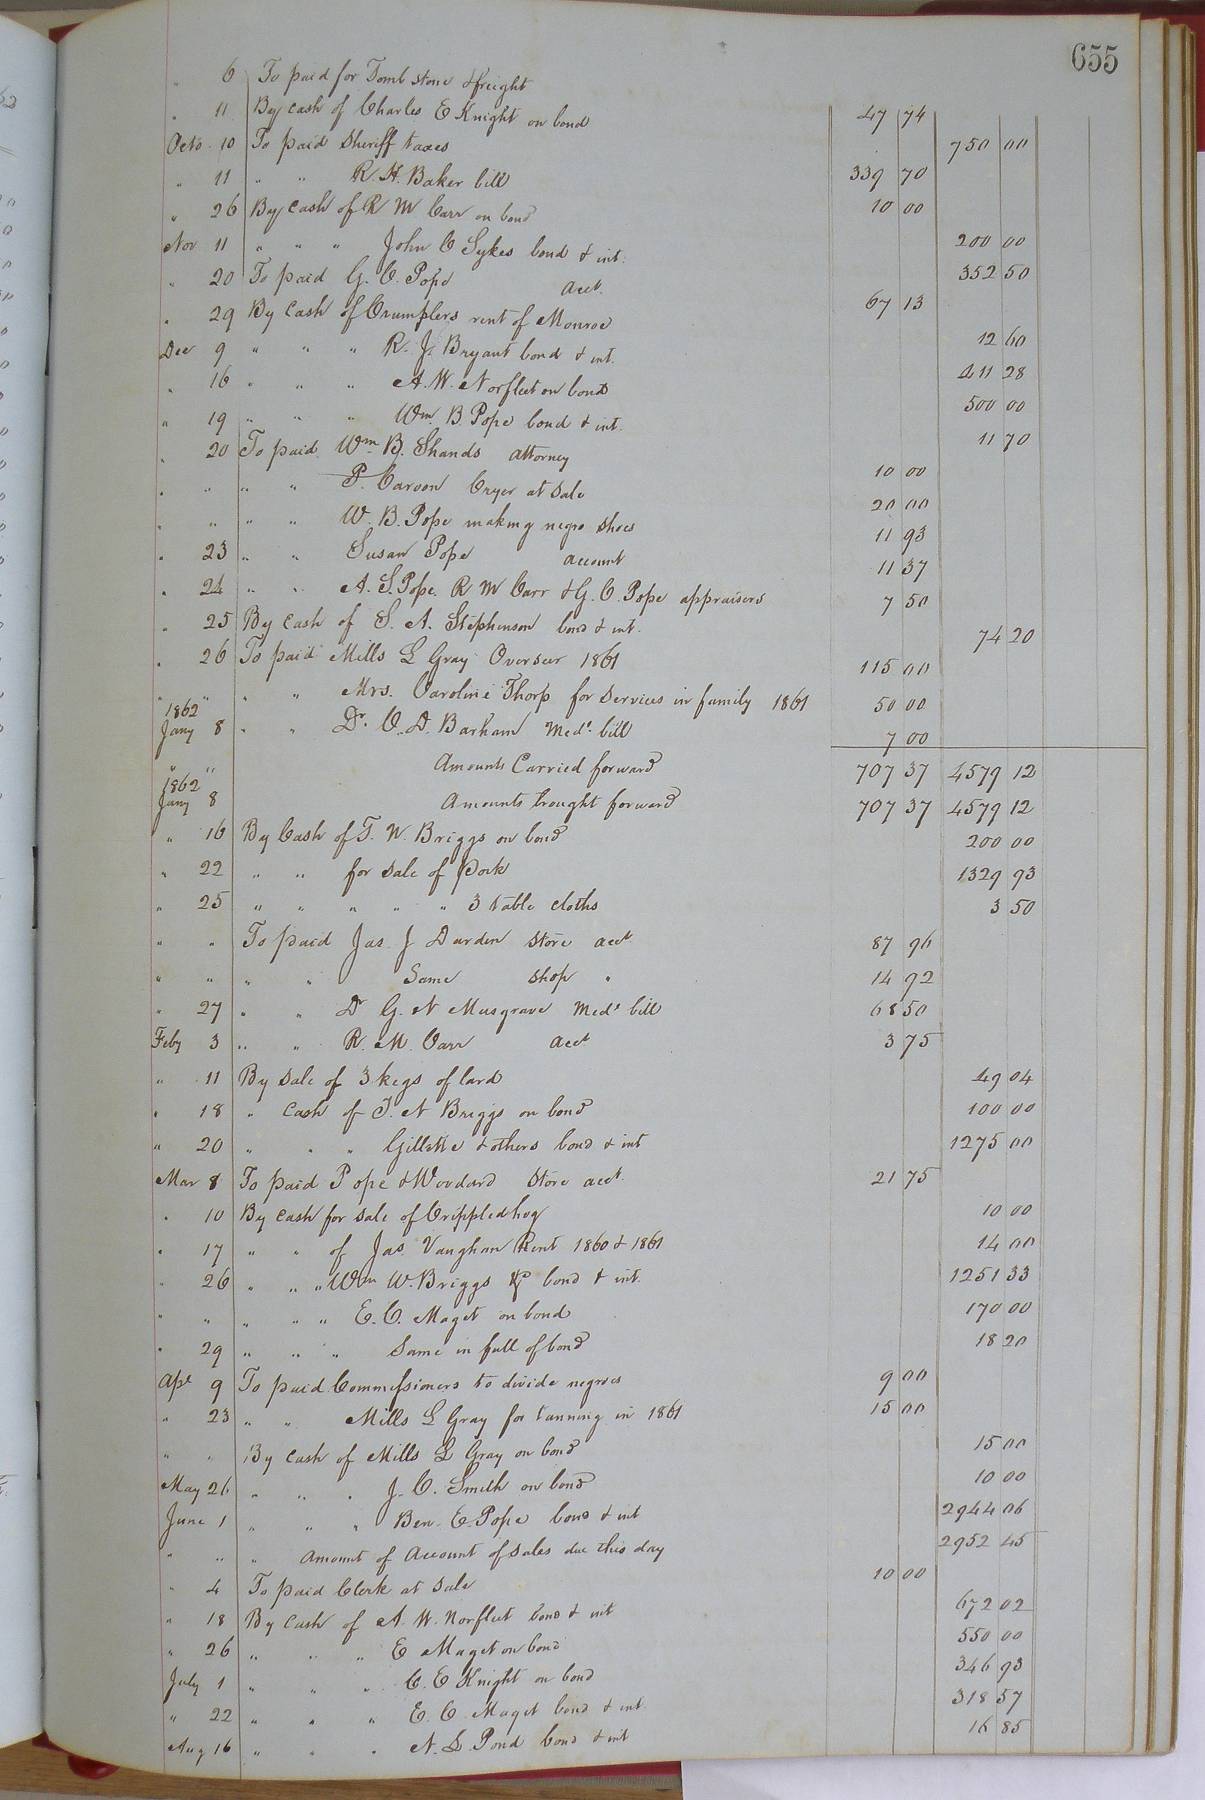 655
" 6 To paid for Tomb stone & freight 47 74
" 11 By cash of Charles E Knight on bond 750 00
Octo 10 To paid Sheriff taxes 339 70
" 11 " " R. H. Baker bill 10 00
" 26 By cash of R M Carr on bond 200 00
Nov 11 " " " John C Sykes bond & int. 352 50
" 20 To paid G. C. Pope acct. 67 13
" 29 By Cash of Crumplers rent of Monroe 12 60
Dec 9 " " " R. J. Bryant bond & int. 411 28
" 16 " " " A. W. Norfleet on bond 500 00
" 19 " " " Wm. B. Pope bond & int. 11 70
" 20 To paid Wm. B. Shands attorney 10 00
" " " " P. Carson Cryer at Sale 20 00
" " " " W. B. Pope making negro shoes 11 93
" 23 " " Susan Pope account 11 37
" 24 " " A. S. Pope. R M Carr & G. C. Pope appraisers 7 50
" 25 By Cash of S. A. Stephenson bond & int. 74 20
" 26 To paid Mills L Gray Overseer 1861 115 00
" " " " Mrs. Caroline Thorp for services in family 1861 50 00
1862
Jany 8 " " Dr. O. D. Barham Medl. bill 7 00
" " Amounts Carried forward 707 37 4579 12
1862
Jany 8 Amounts brought forward 707 37 4579 12
" 16 By Cash of T. N. Briggs on bond 200 00
" 22 " " for sale of Pork 1329 93
" 25 " " " " " 3 table cloths 3 50
" " To paid Jas J Darden Store acct 87 96
" " " " Same Shop " 14 92
" 27 " " Dr G. N Musgrave Medl bill 68 50
Feby 3 " " R. M. Carr acct 3 75
" 11 By Sale of 3 kegs of lard 49 04
" 18 " Cash of T. N Briggs on bond 100 00
" 20 " " " Gillette & others bond & int 1275 00
Mar 8 To paid Pope & Woodard Store acct. 21 75
" 10 By cash for sale of Crippled hog 10 00
" 17 " " of Jas. Vaughan Rent 1860 & 1861 14 00
" 26 " " " Wm W. Briggs &c bond & int. 1251 33
" " " " " E. C. Maget on bond 170 00
" 29 " " " Same in full of bond 18 20
Apl 9 To paid Commissioners to divide negroes 9 00
" 23 " " Mills L Gray for tanning in 1861 15 00
" " By cash of Mills L Gray on bond 15 00
May 26 " " " J. C. Smith on bond 10 00
June 1 " " " Ben. E. Pope bond & int 2944 06
" " " Amount of Account of sales due this day 2952 45
" 4 To paid Clerk at Sale 10 00
" 18 By Cash of A. W. Norfleet bond & int 672 02
" 26 " " " E Maget on bond 550 00
July 1 " " " C. E Knight on bond 346 93
" 22 " " " E. C. Maget bond & int 318 57
Aug 16 " " " N. L. Pond bond & int 16 85